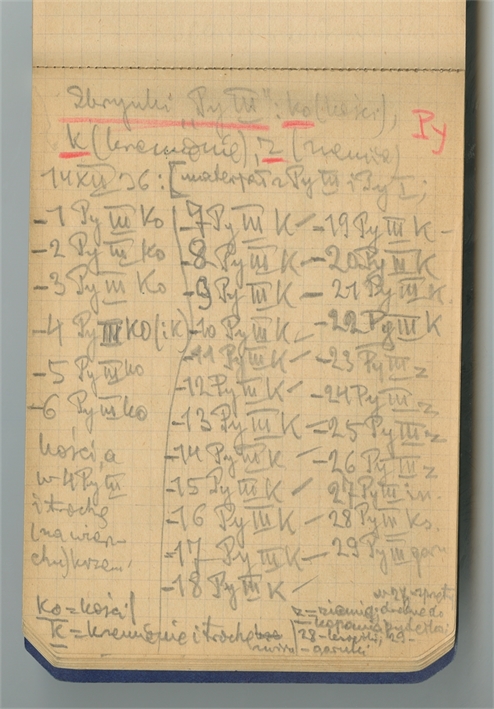 Skrzynki „Py III": ko (kości),
k (krzemienie), z (ziemia)
Py
14 XII 36: [materjał z Py III i Py I;
-1 Py III Ko
-2 Py III ko
-3 Py III Ko
-4 Py III KO (i K)
-5 Py III ko
-6 Py III ko
kości, a
w 4 Py III
i trochę
(na wierz-
chu) krzem.
7 Py III K
-8 Py III K
-9 Py III K
-10 Py III K
-11 Py III K
-12 Py III K
-13 Py III K
-14 Py III K
-15 Py III K
-16 Py III K
-17 Py III K
-18 Py III K
-19 Py III K
-20 Py III K
-21 Py III K
-22 Py III K
-23 Py III z
-24 Py III z
-25 Py III z
-26 Py III z
27 Py III in.
28 Py III ko.
29 Py III garn
Ko = kości
K = krzemienie i trochę
z = ziemia; drobne do
kopania pudełko;
28-kostki, 29-
-garnki